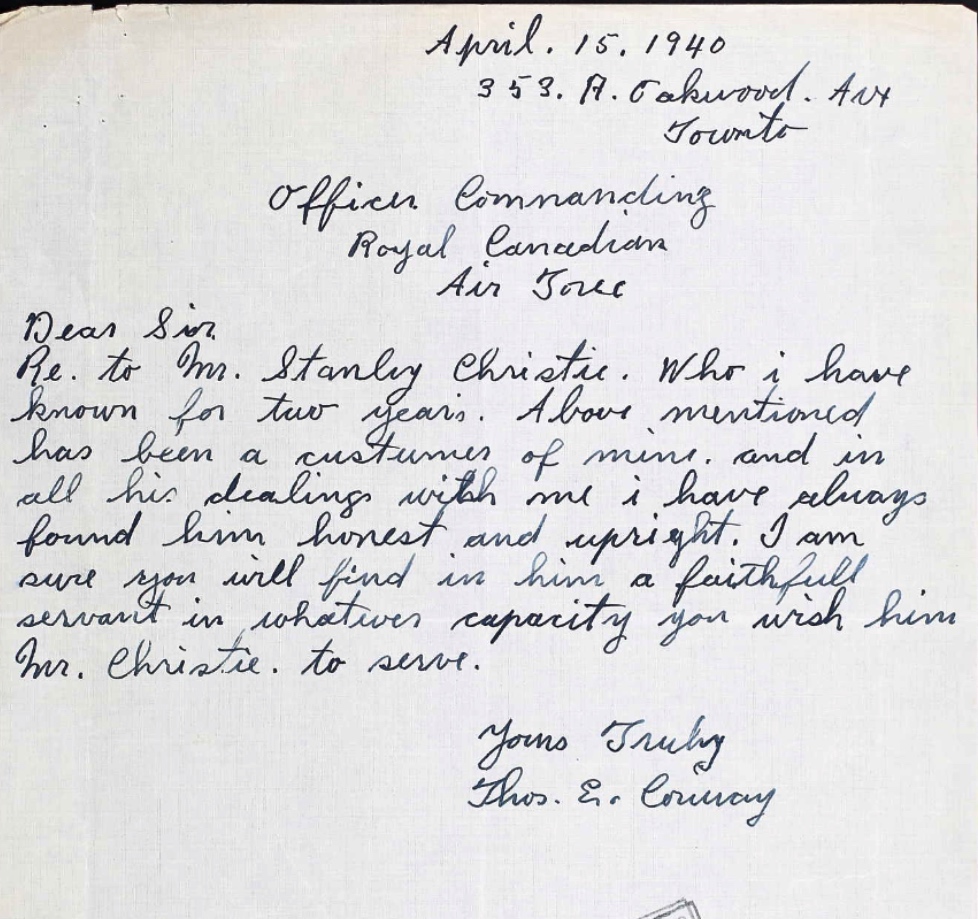 April. 15. 1940
353. A. Oakwood. Ave
Toronto
Officer Commanding
Royal Canadian
Air Force
Dear Sir
Re. to Mr. Stanley Christie. Who i have
known for two years. Above mentioned
has been a custumer of mine. and in
all his dealings with me i have always
found him honest and upright. I am
sure you will find in him a faithfull
servant in whatever capacity you wish him
Mr. Christie. to serve.
Yours Truly
Thos. E. Conway